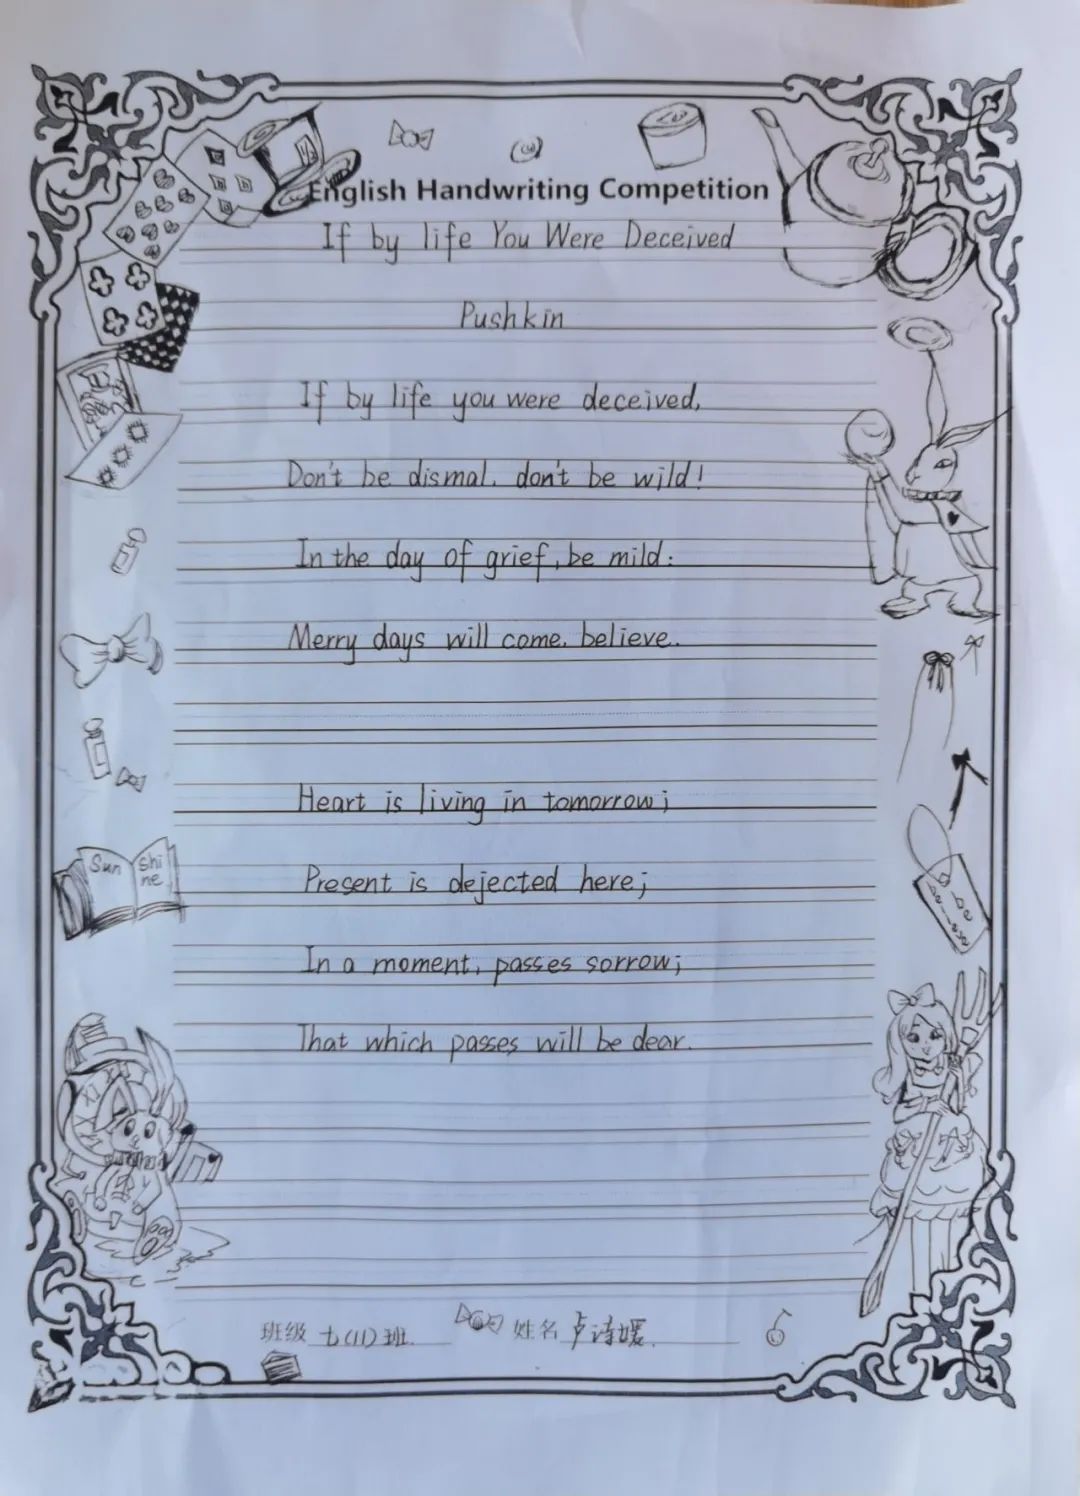 English Handwriting Competition
If by life You Were Deceived
Pushkin
If by life you were deceived,
Don't be dismal. don't be wild!
In the day of grief, be mild:
Merry days will come. believe..
Heart is living in tomorrow;
Sun shi
ne
Present is dejected here;
In a moment, passes sorrow;
That which passes will be dear.
班级 七(11)班 姓名 卢诗媛